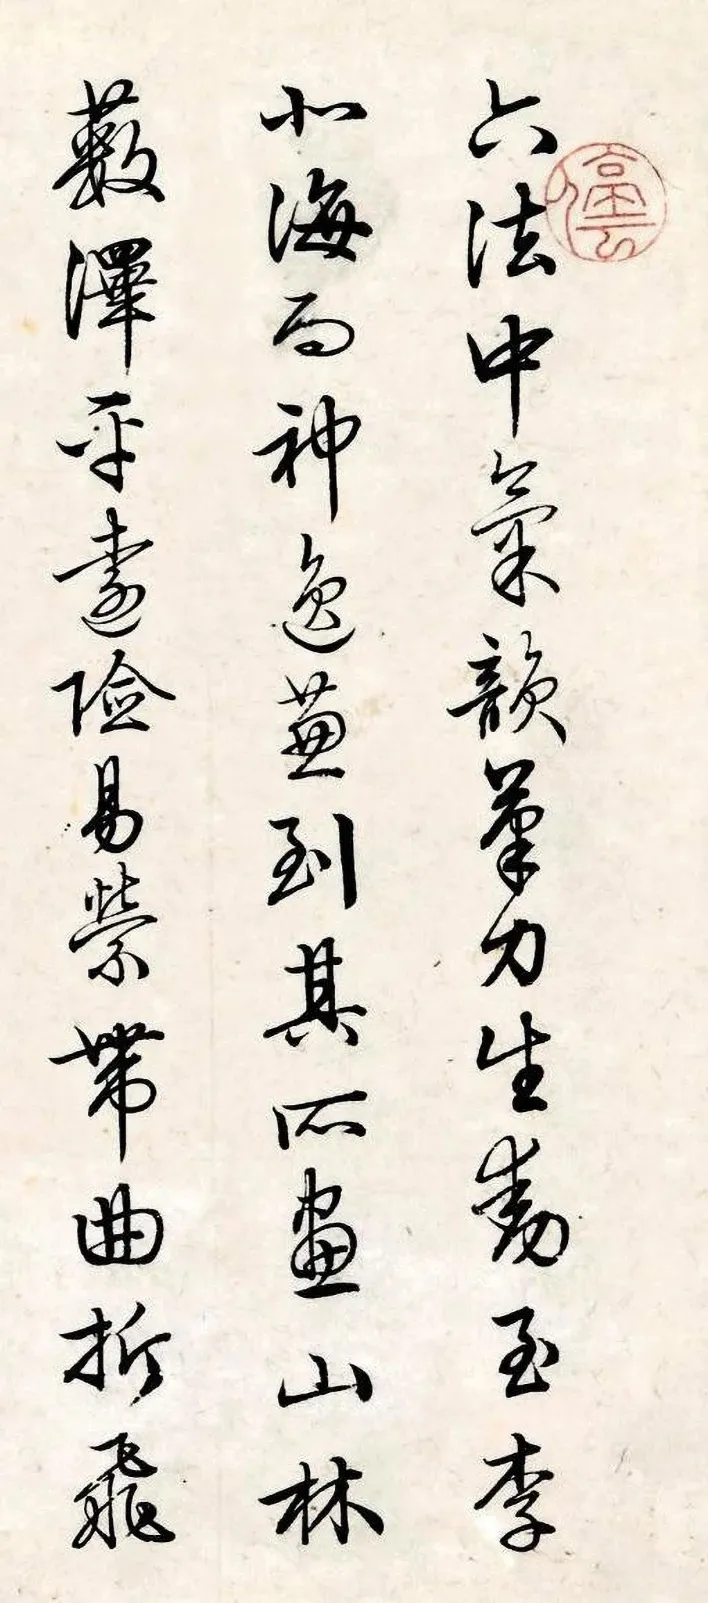 停雲
六法中氣韻筆力生動至李
北海而神逸兼到其所畫山林
藪澤平遠險易縈帶曲折飛